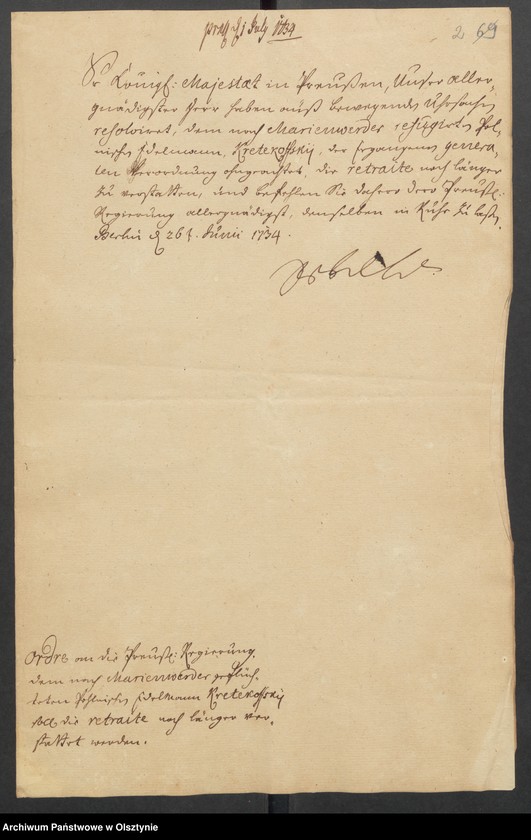 July 1734
2 69
Sr Königl: Majestæt in Preußen, Unser aller-
gnädigster Herr haben auß bewegenden Uhrsachen
resolviret, dem nach Marienwerder refugirten Pol-
nischen Edelmann, Kretekofskij, der ergangenen genera-
len Verordnung ohngeachtet, die retraite noch länger
zu verstatten, und befehlen Sie dahero dero Preuß:
Regierung allergnädigst, denselben in Ruhe zu laßen.
Berlin d 26t. Junii 1734.
Ordre an die Preuß: Regierung,
dem nach Marienwerder geflüch-
teten Pohlnischen Edelmann Kretekofskij
soll die retraite noch länger ver-
stattet werden.
Archiwum Państwowe w Olsztynie